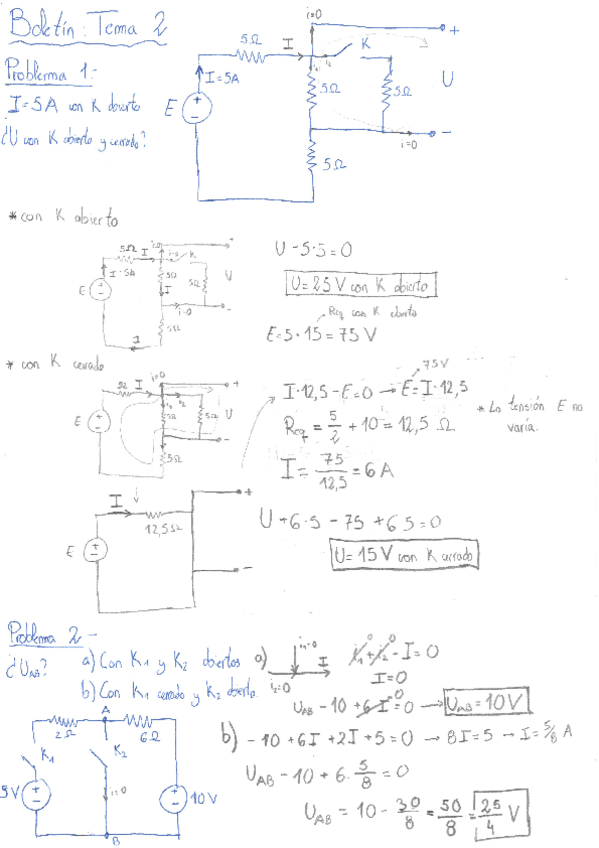 Boletín: Tema 2
Problema 1:-
I=5A con K abierto
¿U con K abierto y cerrado?
5Ω
I
i=0
K
+
I=5A
E
i₁
i₂
5Ω
5Ω
U
-
i=0
5Ω
* con K abierto
5Ω
I
i=0
K
+
I=5A
E
5Ω
I
5Ω
U
-
i=0
5Ω
I
U-5·5=0
U=25V con K abierto
Req con K abierto
E=5·15=75V
* con K cerrado
5Ω
I
i=0
+
i₁
i₂
E
5Ω
5Ω
U
-
5Ω
75V
I·12,5-E=0 → E=I·12,5
Req = 5/2 + 10 = 12,5 Ω
* La tensión E no
varía.
I = 75/12,5 = 6 A
I
+
12,5Ω
E
-
U+6·5-75+6·5=0
U=15V con K cerrado
Problema 2-
¿U_AB?
a) Con K₁ y K₂ abiertos
b) Con K₁ cerrado y K₂ abierto.
a)
i₁=0
I
i₂=0
i₁+i₂-I=0
0
0
I=0
U_AB-10+6·I=0 → U_AB=10V
0
A
2Ω
6Ω
K₁
K₂
5V
i=0
10V
B
b) -10+6I+2I+5=0 → 8I=5 → I=5/8 A
U_AB-10+6·5/8=0
U_AB = 10 - 30/8 = 50/8 = 25/4 V